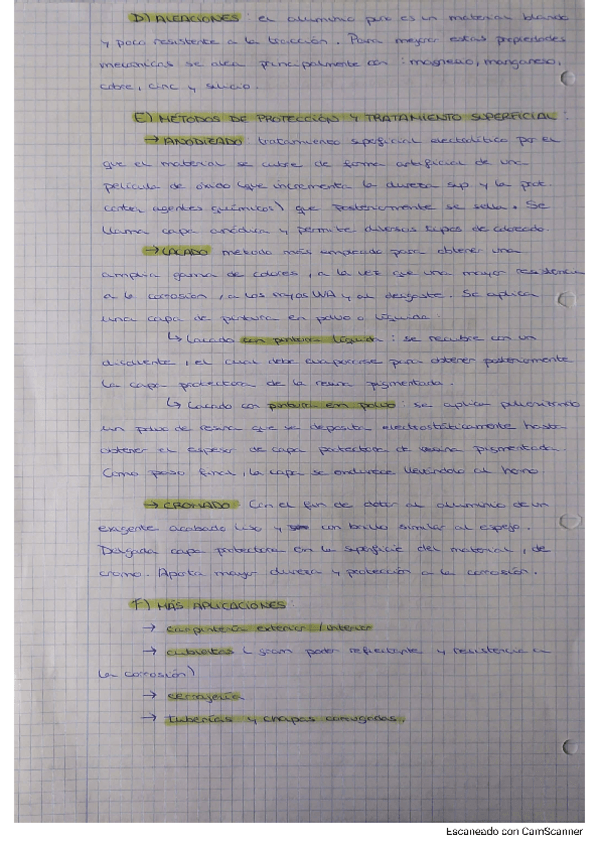 D) ALEACIONES : el aluminio puro es un material blando
y poco resistente a la tracción. Para mejorar estas propiedades
mecánicas se alea principalmente con : magnesio, manganeso,
cobre, cinc y silicio.
E) MÉTODOS DE PROTECCIÓN Y TRATAMIENTO SUPERFICIAL :
→ ANODIZADO : tratamiento superficial electrolítico por el
que el material se cubre de forma artificial de una
película de óxido (que incrementa la dureza sup. y la prot.
contra agentes químicos) que posteriormente se sella. Se
llama capa anódica y permite diversos tipos de coloreado.
→ LACADO método más empleado para obtener una
amplia gama de colores, a la vez que una mayor resistencia
a la corrosión, a los rayos UVA y al desgaste. Se aplica
una capa de pintura en polvo o líquida.
↳ Lacado con pintura líquida : se recubre con un
disolvente, el cual debe evaporarse para obtener posteriormente
la capa protectora de la resina pigmentada.
↳ Lacado con pintura en polvo : se aplica pulverizando
un polvo de resina que se deposita electrostáticamente hasta
obtener el espesor de capa protectora de resina pigmentada.
Como paso final, la capa se endurece llevándolo al horno.
→ CROMADO Con el fin de dotar al aluminio de un
exigente acabado liso y un brillo similar al espejo.
Delgada capa protectora en la superficie del material, de
cromo. Aporta mayor dureza y protección a la corrosión.
F) MÁS APLICACIONES
→ carpintería exterior / interior
→ cubiertas (gram poder reflectante y resistencia a
la corrosión)
→ cerrajería
→ tuberías y chapas corrugadas.
Escaneado con CamScanner